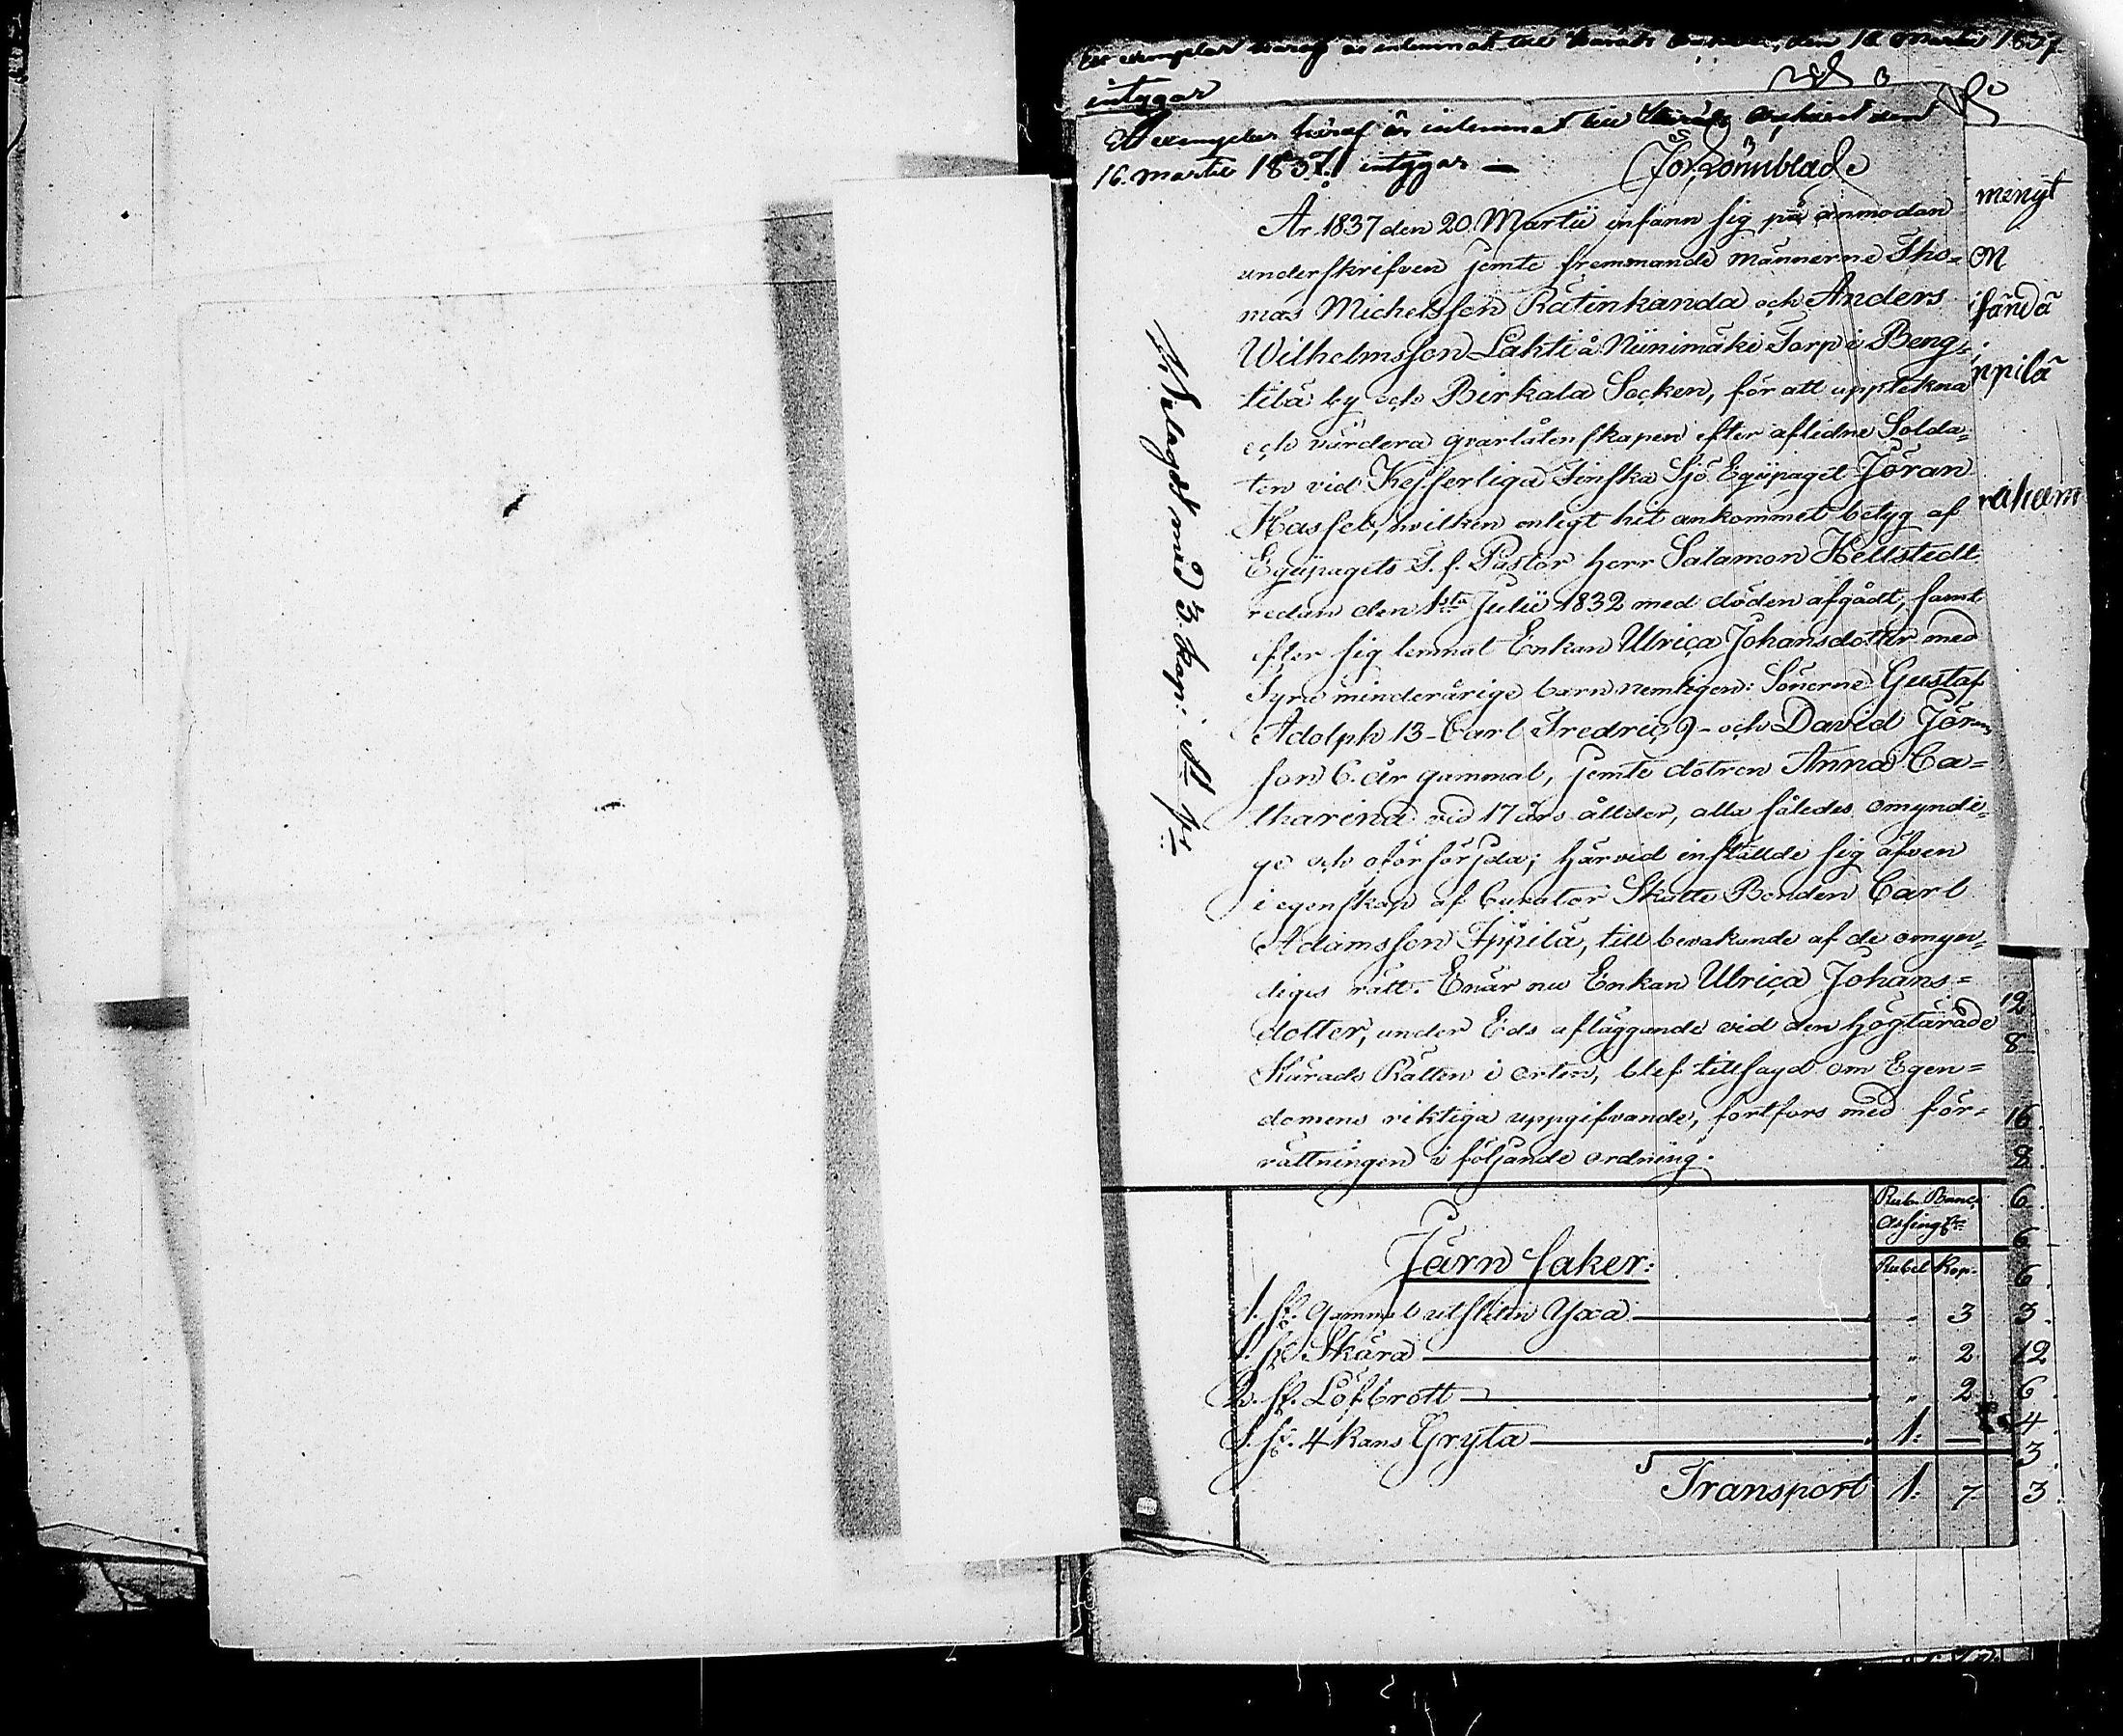 intygar
Ett exemplar häraf är inlemnat till Härads Archivet den
16. Martii 1837. intygar —
Jos. Lönnblad
År 1837 den 20. Martii infann sig på anmodan
underskrifven jemte fremmande männerne Tho-
mas Michelsson Rätinkanda och Anders
Wilhelmsson Lahti å Niinimäki Torp i Beng-
tilä by och Birkala Socken, för att uppteckna
och värdera qvarlåtenskapen efter aflidne Solda-
ten vid Kejserliga Finska Sjö Eqüpaget Jöran
Hassel, hvilken enligt hit ankommet betyg af
Eqüpagets T. f. Pastor Herr Salamon Hellstedt
redan den 1sta Julii 1832 med döden afgådt, samt
efter sig lemnat Enkan Ulrica Johansdotter med
Fyra minderårige barn nemligen: Sönerne Gustaf
Adolph 13- Carl Fredric 9- och David Jöran-
son 6. år gammal, jemte dotren Anna Ca-
tharina vid 17 års ållder, alla således omyndi-
ge och oförsörjda; härvid inställde sig äfven
i egenskap af Curator Skatte Bonden Carl
Adamsson Ippilä, till bevakande af de omyn-
diges rätt. Enär nu Enkan Ulrica Johans-
dotter, under Eds afläggande vid den Högtärade
Härads Rätten i orten, blef tillsagd om Egen-
domens riktiga uppgifvande, fortfors med för-
rättningen i följande ordning.
Rub. Banco
Assing:
Järn saker:
Rubel Kop.
1. st. Gammal utsliten Yxa — " 3
1. st. Skära — " 2
2. st. Löfbrott — " 2
1. st. 4 Kans Gryta — 1. —
Transport 1. 7.
mengt
M
isändä
ppilä
raham
12
8
16
8.
6.
6
6.
3.
12
6.
4.
3
3.